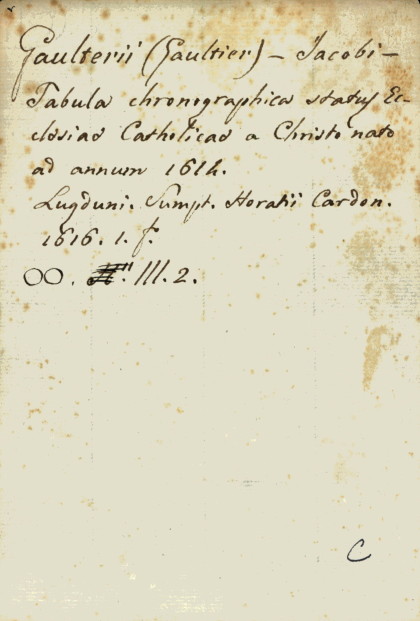 Gaulterii (Gaultier) – Jacobi –
Tabula chronographica status Ec-
clesiae Catholicae a Christo nato
ad annum 1614.
Lugduni. Sumpt. Horatii Cardon.
1616. 1. f.
OO. III. 2.
C